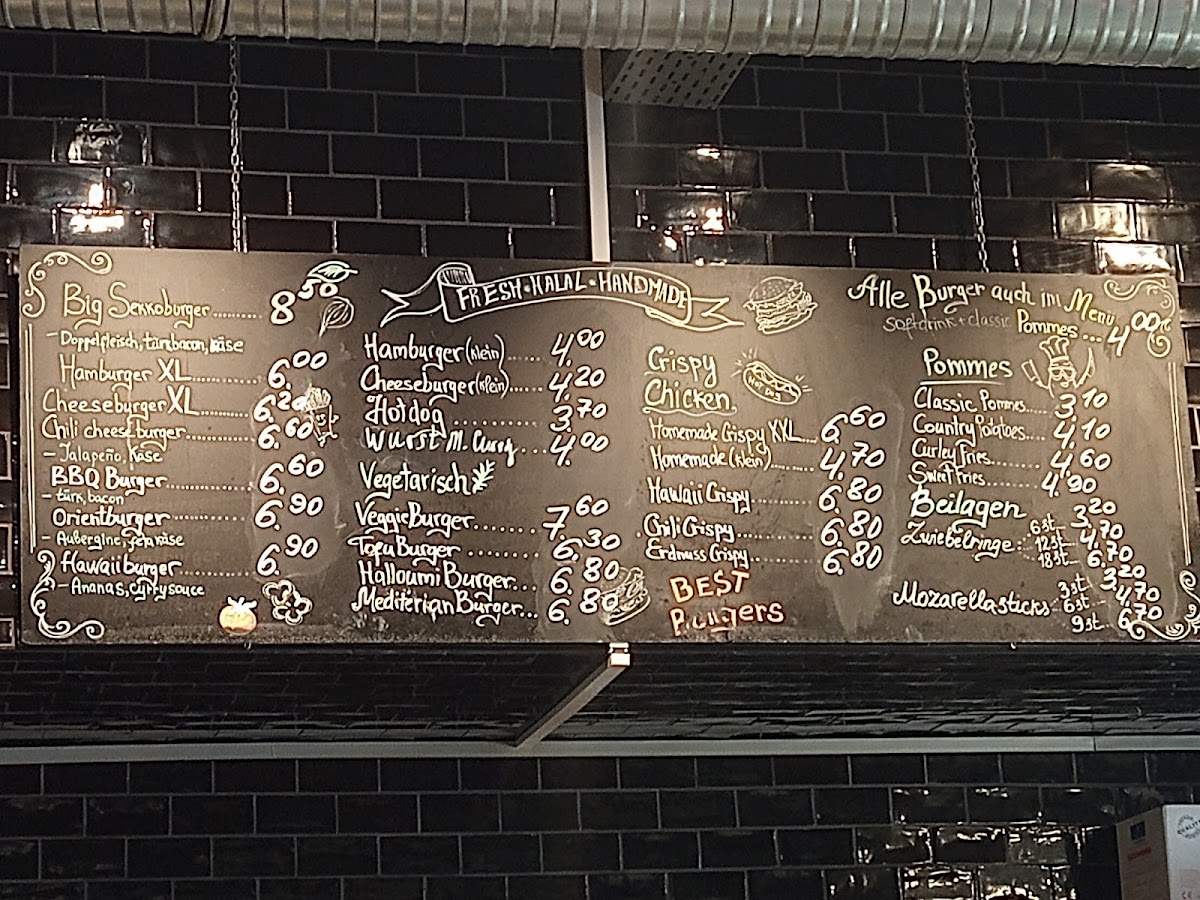 Big Sekkoburger.......... 8 50
- Doppelfleisch, türk.bacon, käse
Hamburger XL.......... 6.00
Cheeseburger XL.......... 6.20
Chili cheeseburger.......... 6.60
- Jalapeño, Käse
BBQ Burger.......... 6.60
- türk, bacon
Orientburger.......... 6.90
- Aubergine, feta käse
Hawaiiburger.......... 6.90
- Ananas, Currysouce
FRESH • HALAL • HANDMADE
Hamburger (klein)...... 4.00
Cheeseburger (klein)..... 4.20
Hotdog .......... 3.70
Wurst M. Curry... 4.00
Vegetarisch
Veggie Burger....... 7.60
Tofu Burger ........ 6.30
Halloumi Burger... 6.80
Mediterian Burger... 6.80
Crispy
Chicken
Homemade Crispy XXL... 6.60
Homemade (klein)......... 4.70
Hawaii Crispy.......... 6.80
Chili Crispy.......... 6.80
Erdnuss Crispy.......... 6.80
HOT DOG
BEST
Alle Burger auch im Menü
Softdrink + classic Pommes... 4.00
Pommes
Classic Pommes..... 3.10
Country Potatoes.... 4.10
Curley Fries.......... 4.60
Sweet Fries.......... 4.90
Beilagen
Zwiebelringe : 6 st... 3.20
12 st... 4.70
18 st... 6.70
Mozarellasticks 3 st... 3.20
6 st... 4.70
9 st... 6.70
QUALITY